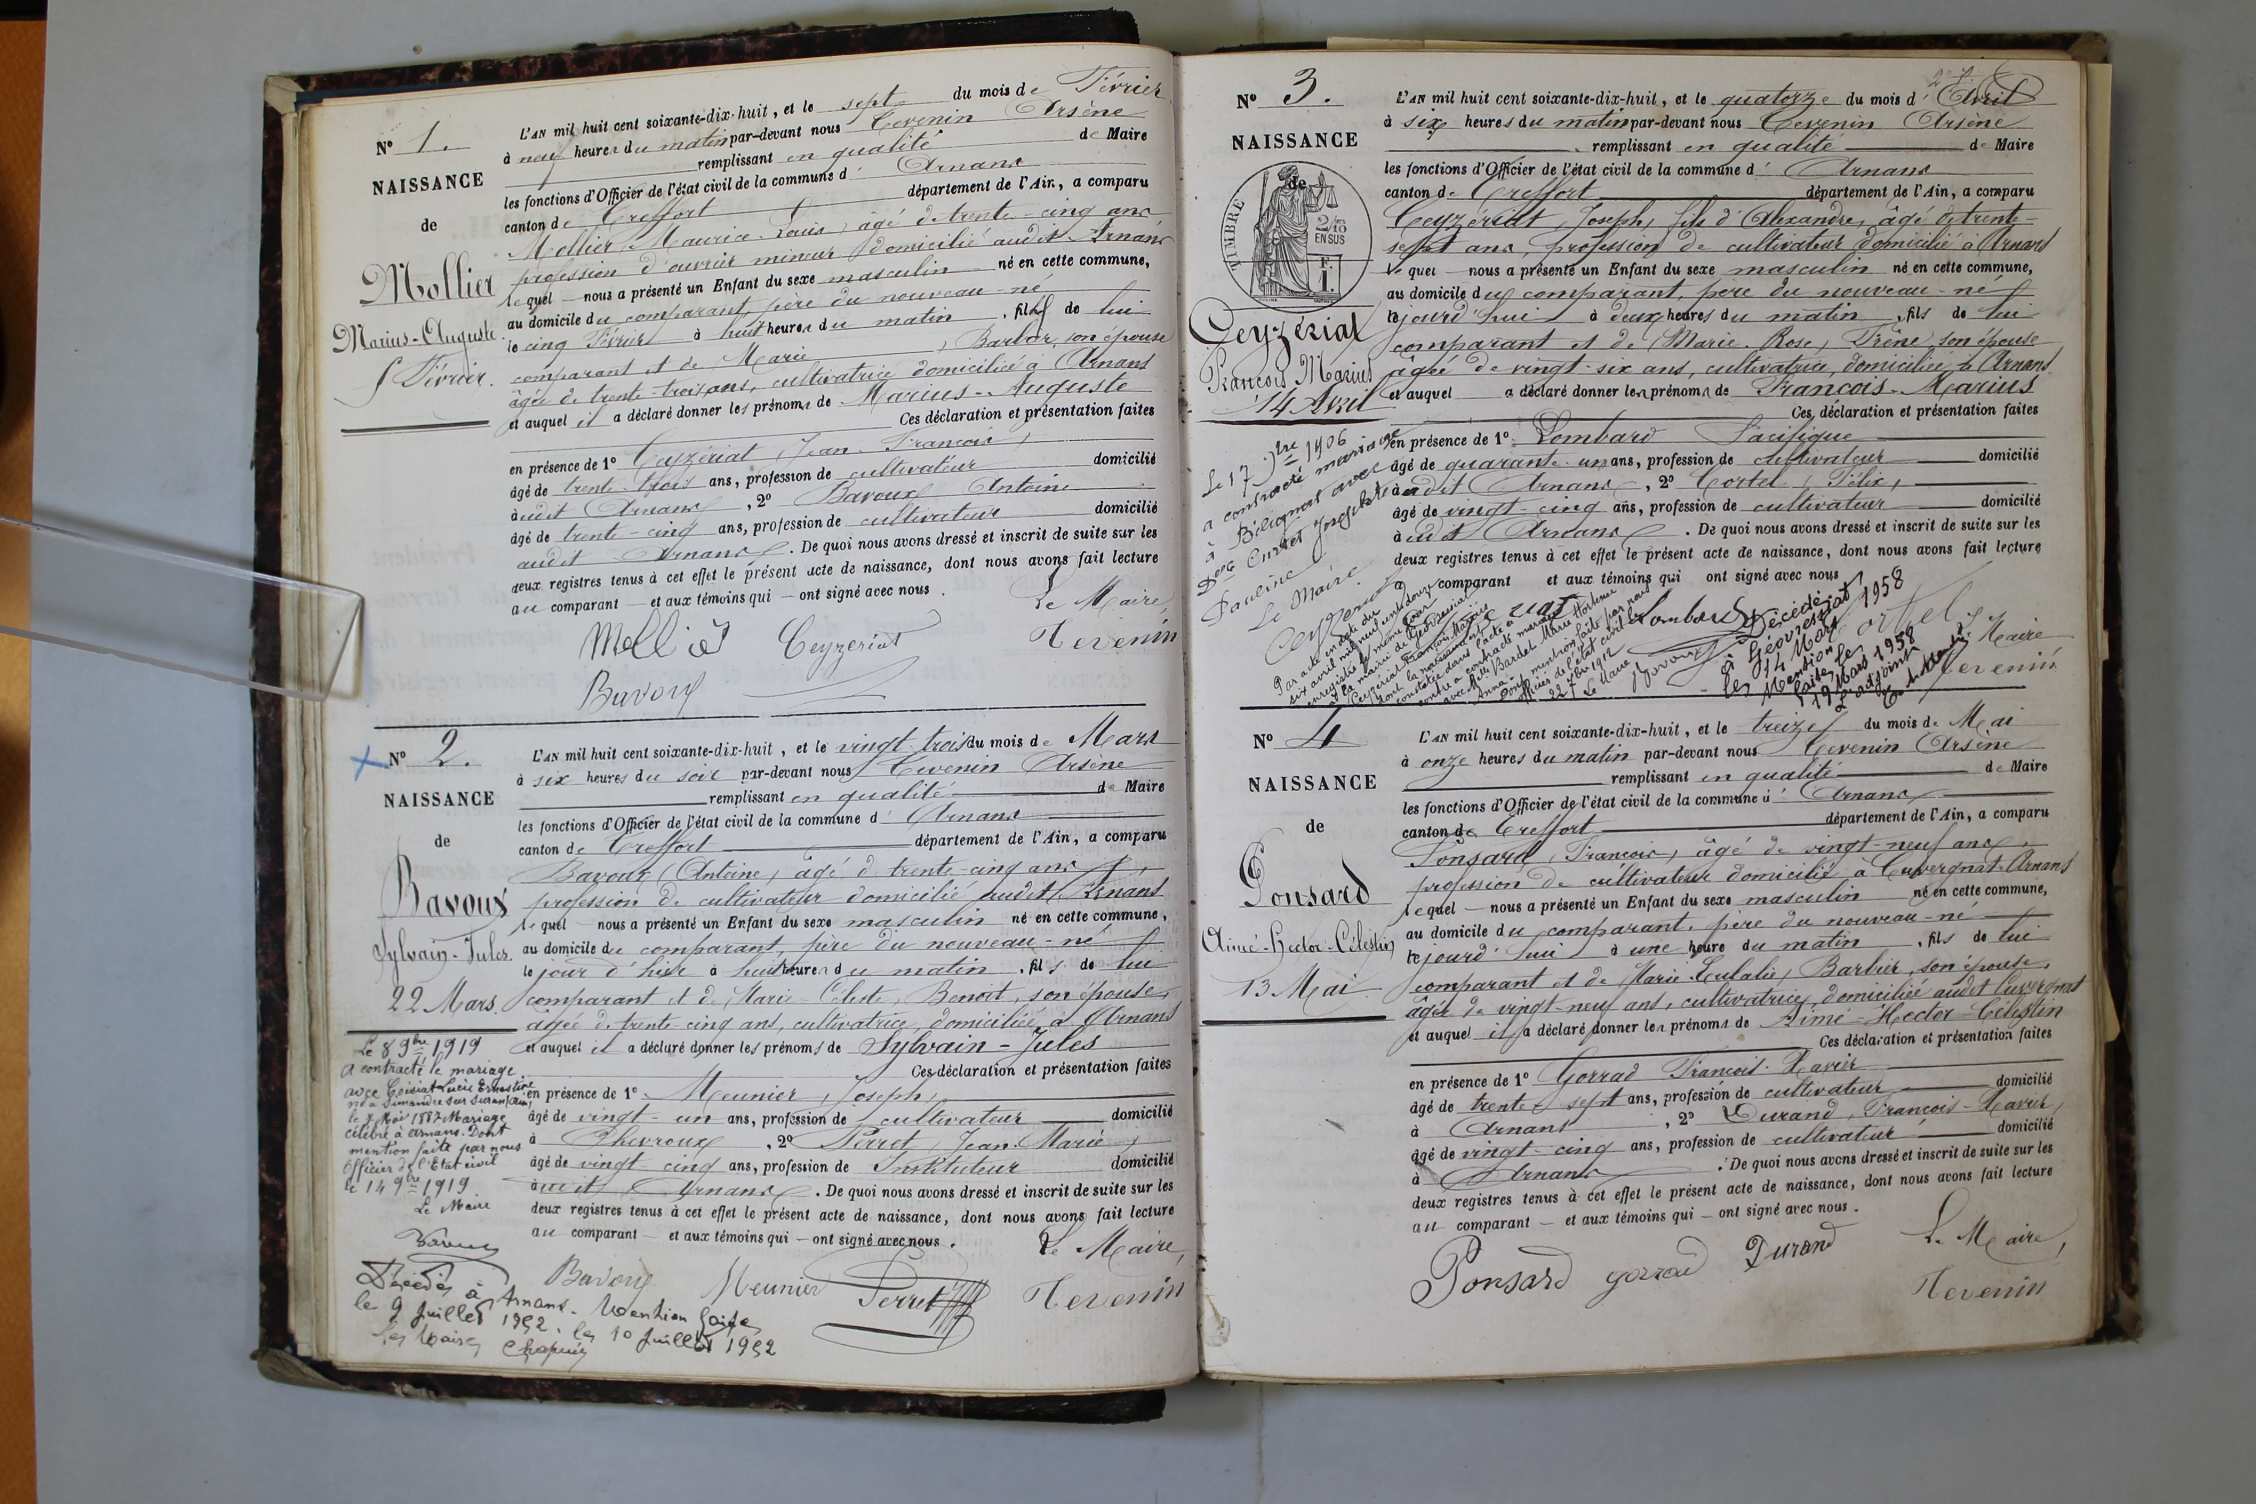 N° 1.
NAISSANCE
de
Mollier
Marius-Auguste
5 Février.
L'AN mil huit cent soixante-dix-huit, et le sept du mois de Février
à neuf heures du matin par-devant nous Tevenin Arsène
remplissant en qualité de Maire
les fonctions d'Officier de l'état civil de la commune d' Arnans
canton de Treffort département de l'Ain, a comparu
Mollier, Maurice-Louis, âgé de trente-cinq ans
profession d'ouvrier mineur domicilié audit Arnans
lequel nous a présenté un Enfant du sexe masculin né en cette commune,
au domicile du comparant, père du nouveau-né
le cinq Février à huit heures du matin, fils de lui
comparant et de Marie, Barbar, son épouse
âgée de trente-trois ans, cultivatrice domiciliée à Arnans
et auquel il a déclaré donner les prénoms de Marius-Auguste
Ces déclaration et présentation faites
en présence de 1° Ceyzériat, Jean-François,
âgé de trente-trois ans, profession de cultivateur domicilié
audit Arnans, 2° Bavoux Antoine
âgé de trente-cinq ans, profession de cultivateur domicilié
audit Arnans. De quoi nous avons dressé et inscrit de suite sur les
deux registres tenus à cet effet le présent acte de naissance, dont nous avons fait lecture
au comparant et aux témoins qui ont signé avec nous.
Le Maire,
Mollier Ceyzeriat Tevenin
Bavoux
N° 2.
NAISSANCE
de
Bavoux
Sylvain-Jules.
22 Mars.
L'AN mil huit cent soixante-dix-huit, et le vingt-trois du mois de Mars
à six heures du soir par-devant nous Tevenin Arsène
remplissant en qualité de Maire
les fonctions d'Officier de l'état civil de la commune d' Arnans
canton de Treffort département de l'Ain, a comparu
Bavoux, Antoine, âgé d trente-cinq ans,
profession de cultivateur domicilié audit Arnans
lequel nous a présenté un Enfant du sexe masculin né en cette commune,
au domicile du comparant, père du nouveau-né
le jour d'hier à huit heures du matin, fils de lui
comparant et de Marie-Céleste, Benoit, son épouse,
âgée de trente-cinq ans, cultivatrice, domiciliée à Arnans
et auquel il a déclaré donner les prénoms de Sylvain-Jules
Ces déclaration et présentation faites
en présence de 1° Meunier, Joseph,
âgé de vingt-un ans, profession de cultivateur domicilié
à Chevroux, 2° Perret, Jean-Marie,
âgé de vingt-cinq ans, profession de Instituteur domicilié
audit Arnans. De quoi nous avons dressé et inscrit de suite sur les
deux registres tenus à cet effet le présent acte de naissance, dont nous avons fait lecture
au comparant et aux témoins qui ont signé avec nous.
Le Maire,
Bavoux Meunier Perret Tevenin
Le 8 9bre 1919
a contracté le mariage
avec Coisiat Lucie Ernestine
née à Simandre sur Suran (Ain)
le 7 Mai 1887 Mariage
célébré à Arnans. Dont
mention faite par nous
Officier de l'Etat civil
le 14 9bre 1919
Le Maire
Bavoux
Décédé à Arnans. Mention faite
le 9 Juillet 1952. le 10 Juillet 1952
Le Maire Chapuis
N° 3.
NAISSANCE
de
TIMBRE
2/10
EN SUS
F.
1.
Ceyzériat
François Marius
14 Avril
L'AN mil huit cent soixante-dix-huit, et le quatorze du mois d' Avril
à six heures du matin par-devant nous Tevenin Arsène
remplissant en qualité de Maire
les fonctions d'Officier de l'état civil de la commune d' Arnans
canton de Treffort département de l'Ain, a comparu
Ceyzériat, Joseph, fils d'Alexandre, âgé de trente-
sept ans, profession de cultivateur domicilié à Arnans
lequel nous a présenté un Enfant du sexe masculin né en cette commune,
au domicile du comparant, père du nouveau-né
cejourd'hui à deux heures du matin, fils de lui
comparant et de Marie-Rose, Frêne, son épouse
âgée de vingt-six ans, cultivatrice, domiciliée à Arnans
et auquel a déclaré donner les prénoms de François-Marius
Ces déclaration et présentation faites
en présence de 1° Lombard Pacifique
âgé de quarante-un ans, profession de cultivateur domicilié
audit Arnans, 2° Cortel, Félix,
âgé de vingt-cinq ans, profession de cultivateur domicilié
audit Arnans. De quoi nous avons dressé et inscrit de suite sur les
deux registres tenus à cet effet le présent acte de naissance, dont nous avons fait lecture
au comparant et aux témoins qui ont signé avec nous
Ceyzeriat Lombard Cortel Le Maire
Tevenin
Le 17 1906
a contracté mariage
à Bélignat avec
Delle Curtet Josephte
Pauline
Le Maire
Par acte en date du
six avril mil neuf cent douze
enregistré le même jour
à la mairie de Géovressiat
Ceyzériat François Marius
dont la naissance est
constatée dans l'acte ci
contre a contracté mariage
avec Delle Bardet Marie Hortense
Anna. Dont mention faite par nous
officier de l'état civil le
22 1912
Le Maire
Bavoux
Décédé
à Géovressiat
le 14 Mars 1958
Mention
faite le
19 Mars 1958
L'adjoint
N° 4
NAISSANCE
de
Ponsard
Aimé-Hector-Célestin
13 Mai
L'AN mil huit cent soixante-dix-huit, et le treize du mois de Mai
à onze heures du matin par-devant nous Tevenin Arsène
remplissant en qualité de Maire
les fonctions d'Officier de l'état civil de la commune d' Arnans
canton de Treffort département de l'Ain, a comparu
Ponsard, François, âgé de vingt-neuf ans,
profession de cultivateur domicilié à Cuvergnat-Arnans
lequel nous a présenté un Enfant du sexe masculin né en cette commune,
au domicile du comparant, père du nouveau-né
cejourd'hui à une heure du matin, fils de lui
comparant et de Marie-Eulalie, Barbier, son épouse,
âgée de vingt-neuf ans, cultivatrice, domiciliée audit Cuvergnat
et auquel il a déclaré donner les prénoms de Aimé-Hector-Célestin
Ces déclaration et présentation faites
en présence de 1° Gorrad François-Xavier
âgé de trente-sept ans, profession de cultivateur domicilié
à Arnans, 2° Durand, François-Xavier,
âgé de vingt-cinq ans, profession de cultivateur domicilié
à Arnans. De quoi nous avons dressé et inscrit de suite sur les
deux registres tenus à cet effet le présent acte de naissance, dont nous avons fait lecture
au comparant et aux témoins qui ont signé avec nous.
Le Maire,
Ponsard gorrad Durand Tevenin